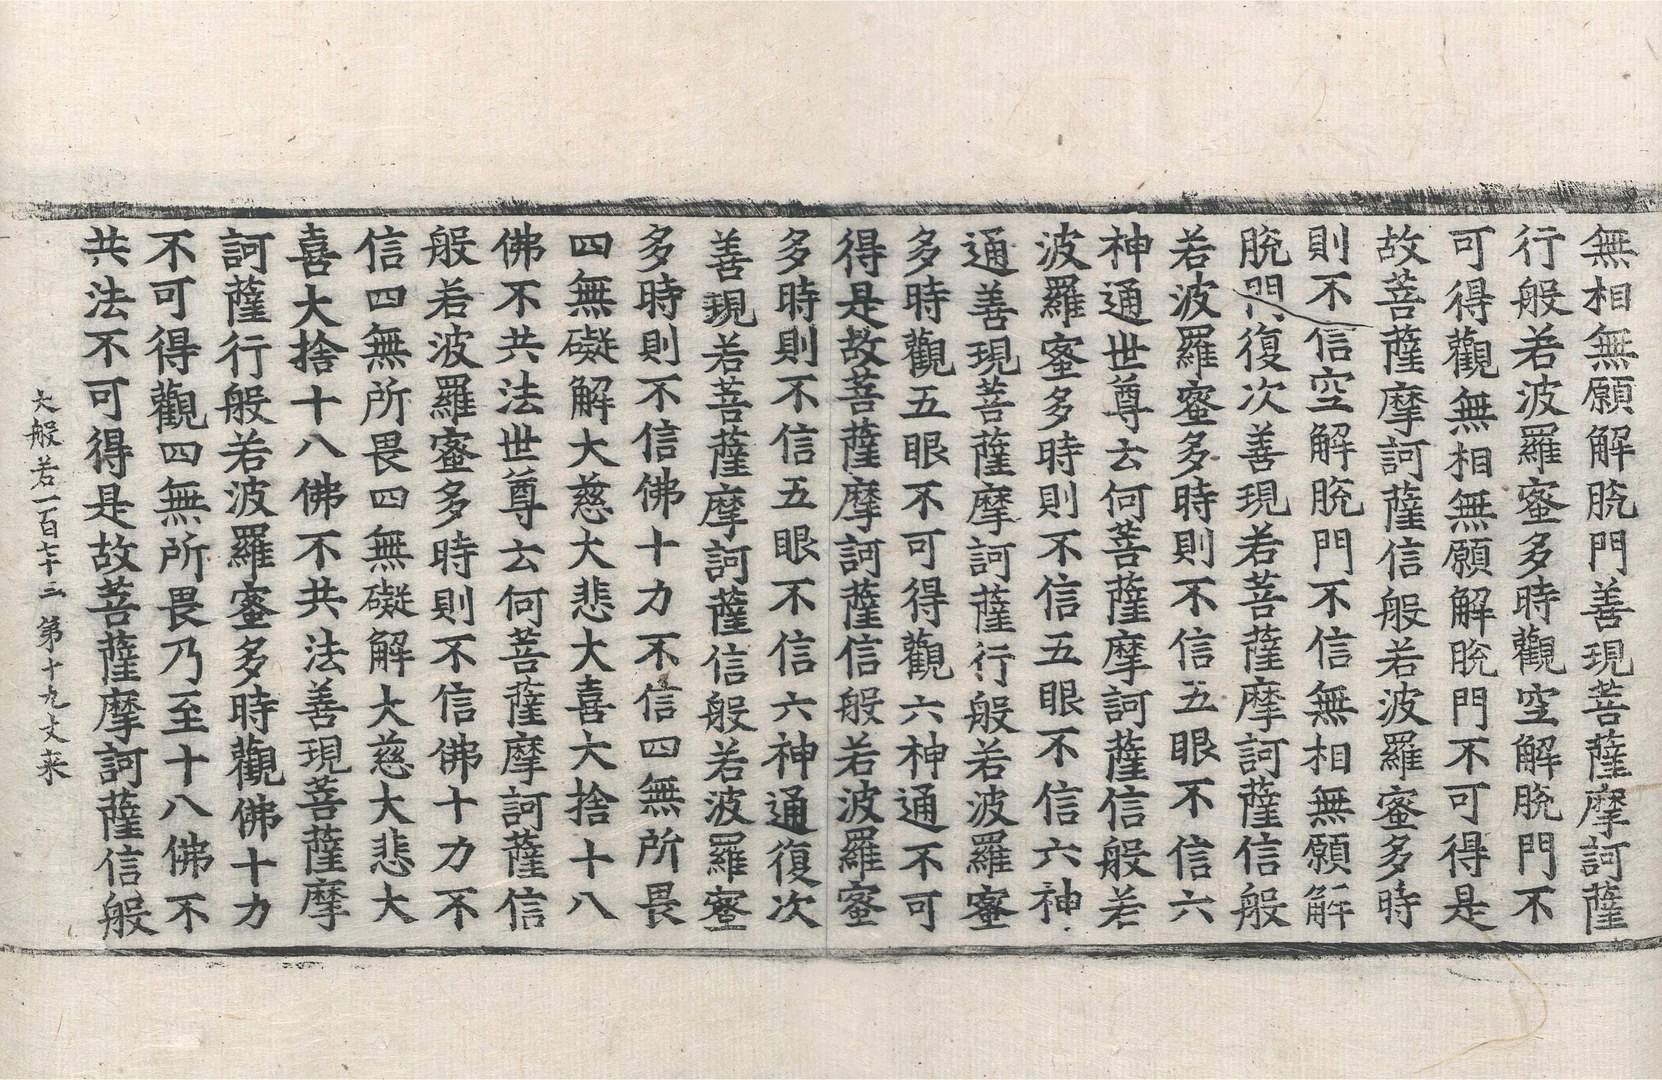 無相無願解脫門善現菩薩摩訶薩
行般若波羅蜜多時觀空解脫門不
可得觀無相無願解脫門不可得是
故菩薩摩訶薩信般若波羅蜜多時
則不信空解脫門不信無相無願解
脫門復次善現若菩薩摩訶薩信般
若波羅蜜多時則不信五眼不信六
神通世尊云何菩薩摩訶薩信般若
波羅蜜多時則不信五眼不信六神
通善現菩薩摩訶薩行般若波羅蜜
多時觀五眼不可得觀六神通不可
得是故菩薩摩訶薩信般若波羅蜜
多時則不信五眼不信六神通復次
善現若菩薩摩訶薩信般若波羅蜜
多時則不信佛十力不信四無所畏
四無礙解大慈大悲大喜大捨十八
佛不共法世尊云何菩薩摩訶薩信
般若波羅蜜多時則不信佛十力不
信四無所畏四無礙解大慈大悲大
喜大捨十八佛不共法善現菩薩摩
訶薩行般若波羅蜜多時觀佛十力
不可得觀四無所畏乃至十八佛不
共法不可得是故菩薩摩訶薩信般
大般若一百七十三 第十九丈 来